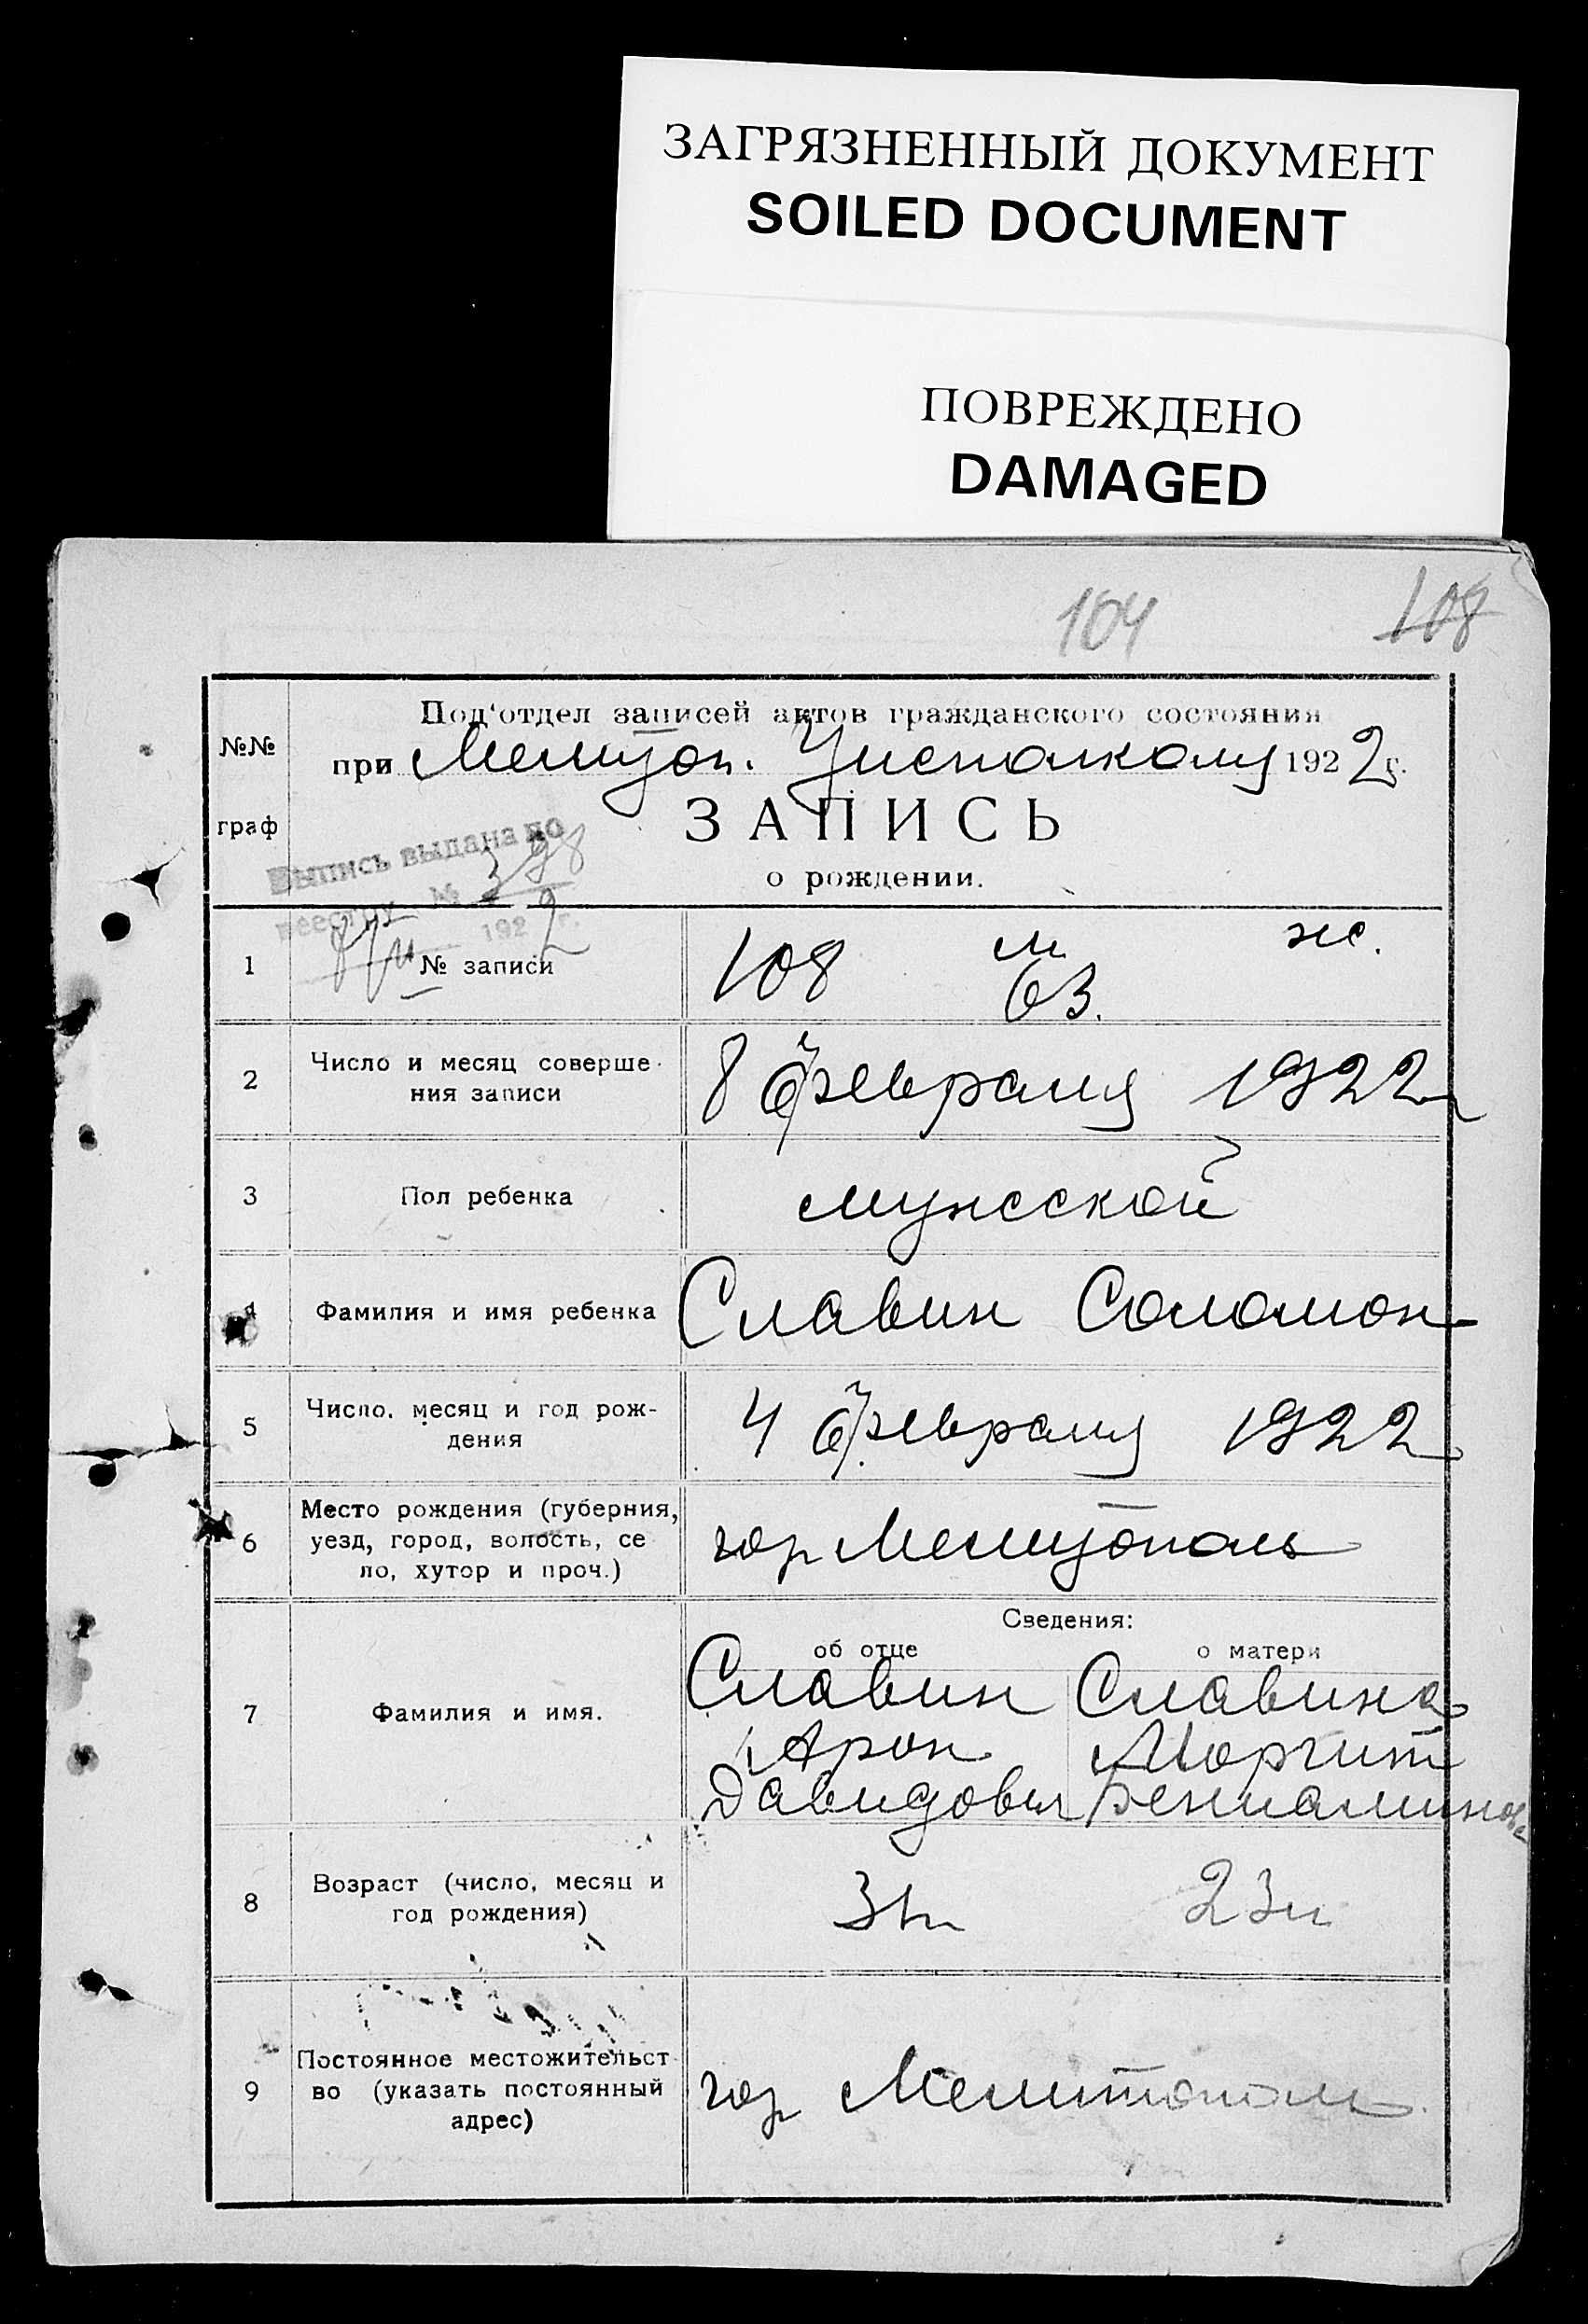 ЗАГРЯЗНЕННЫЙ ДОКУМЕНТ
SOILED DOCUMENT
ПОВРЕЖДЕНО
DAMAGED
104 108
№№
граф
Под'отдел записей актов гражданского состояния
при Мелитоп. Исполкому 1922 г.
ЗАПИСЬ
о рождении.
Выпись выдана по
реестру № 398
1922 г.
1 № записи 108 м ж.
63.
2 Число и месяц соверше-
ния записи
8 февраля 1922
3 Пол ребенка мужской
4 Фамилия и имя ребенка Славин Соломон
5 Число, месяц и год рож-
дения
4 февраля 1922
6 Место рождения (губерния,
уезд, город, волость, се
ло, хутор и проч.)
гор Мелитополь
Сведения:
об отце о матери
7 Фамилия и имя.
Славин Славина
Арон Моргит
Давидович Бениаминовна
8 Возраст (число, месяц и
год рождения)
31л 23л
9 Постоянное местожительст
во (указать постоянный
адрес)
гор Мелитополь.